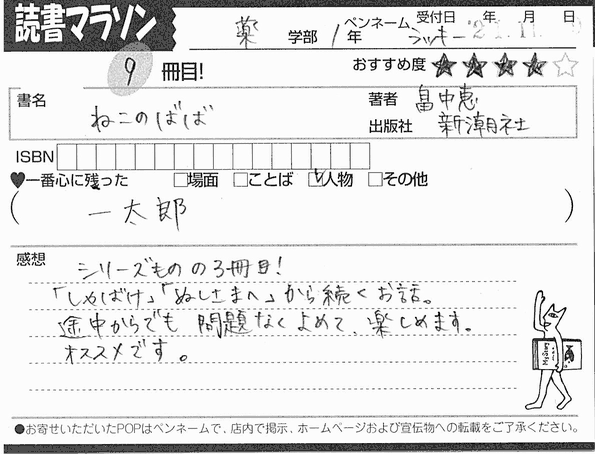 読書マラソン
薬 学部 1 年 ペンネーム ラッキー 受付日 年 月 日
9 冊目! おすすめ度 ★★★★☆
書名 ねこのばば 著者 畠中恵
出版社 新潮社
ISBN
♥一番心に残った □場面 □ことば ☑人物 □その他
( 一太郎 )
感想
シリーズものの3冊目!
「しゃばけ」「ぬしさまへ」から続くお話。
途中からでも問題なくよめて、楽しめます。
オススメです。
●お寄せいただいたPOPはペンネームで、店内で掲示、ホームページおよび宣伝物への転載をご了承ください。